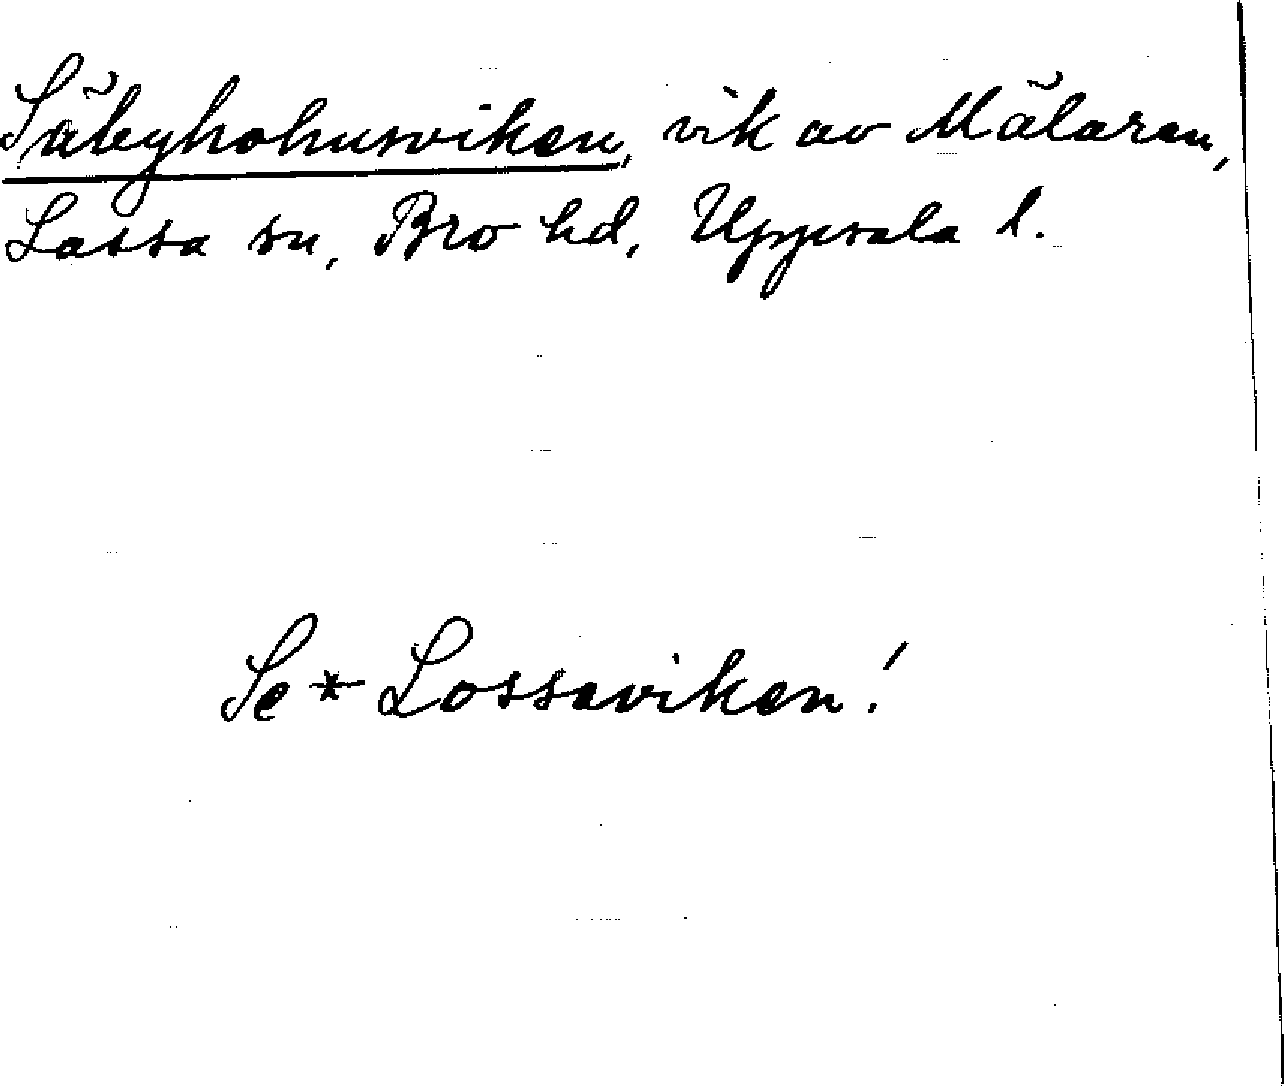 Säbyholmsviken, vik av Mälaren,
Lossa sn, Bro hd, Uppsala l.
Se * Lossaviken!